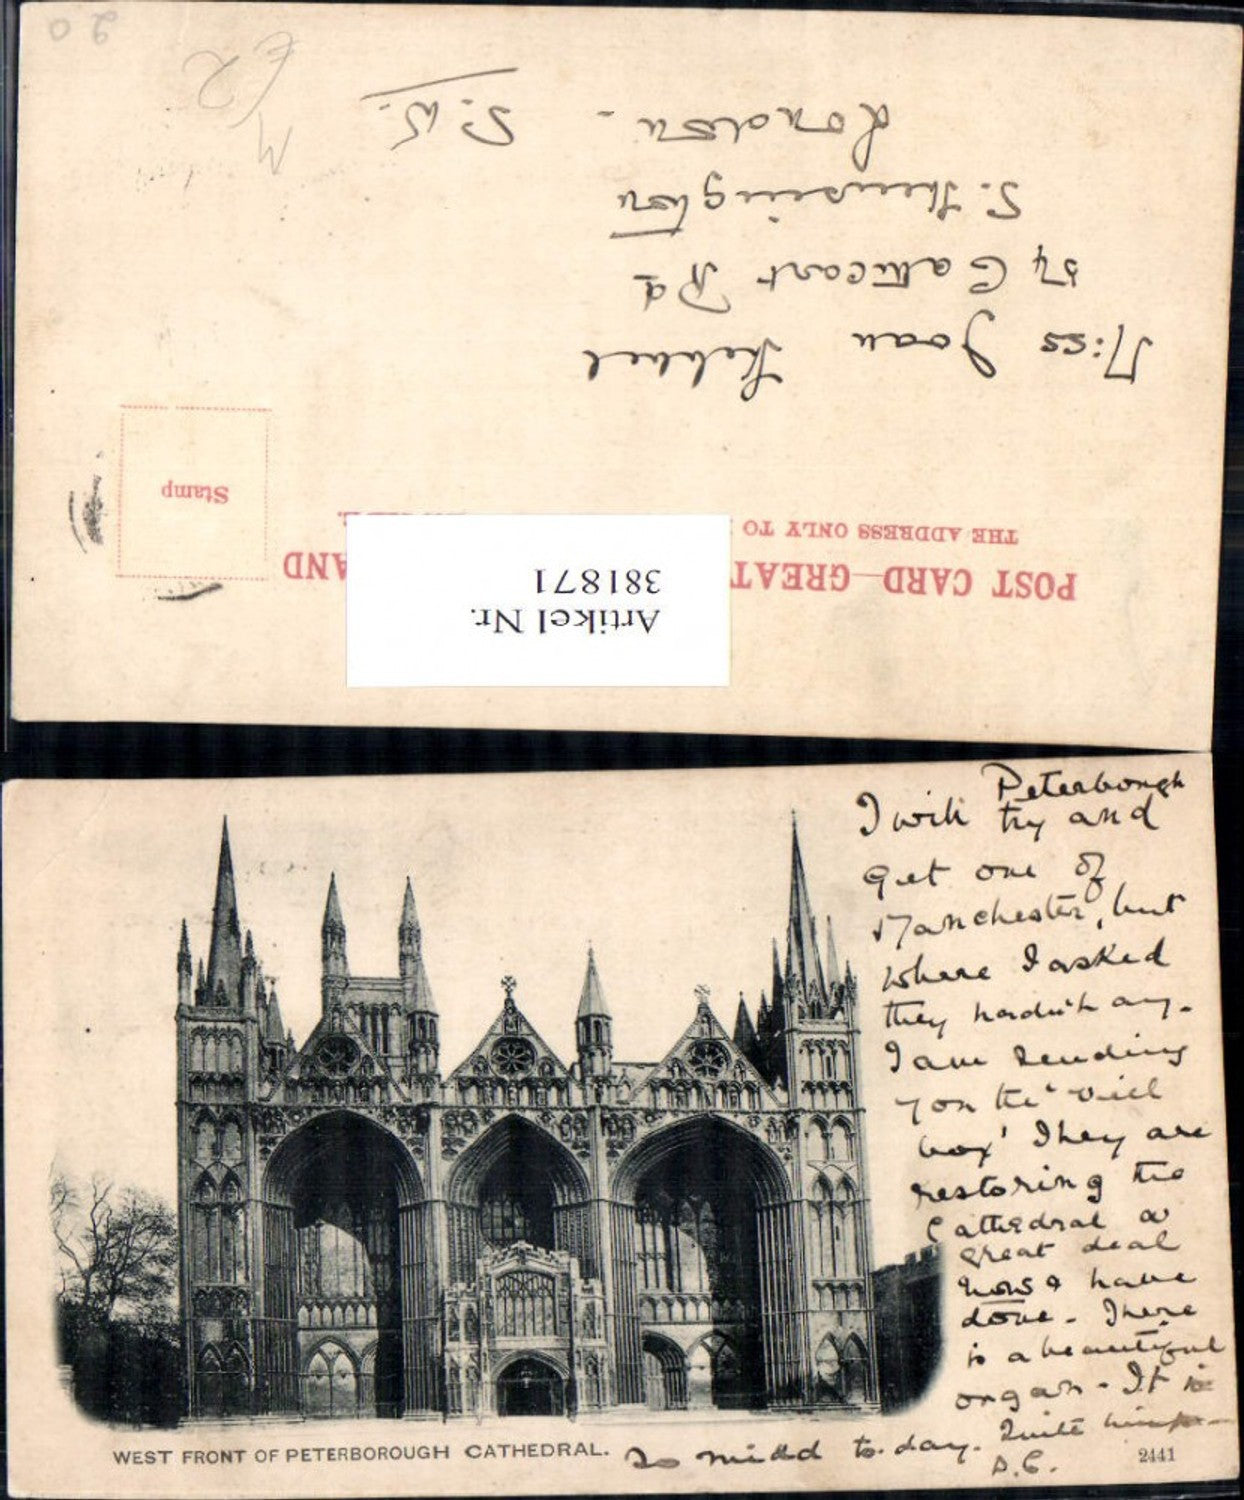 POST CARD—GREAT
AND
THE ADDRESS ONLY TO
Stamp
Artikel Nr.
381871
Miss Joan
54 Cathcart Rd
S. Kensington
London. S.W.
£2
20
Peterborough
I will try and
get one of
Manchester, but
where I asked
they hadn't any.
I am sending
you the
box' They are
restoring the
Cathedral a
great deal
now & have
done. There
is a beautiful
organ. It is
so mild to-day. Quite
A.C.
WEST FRONT OF PETERBOROUGH CATHEDRAL.
2441